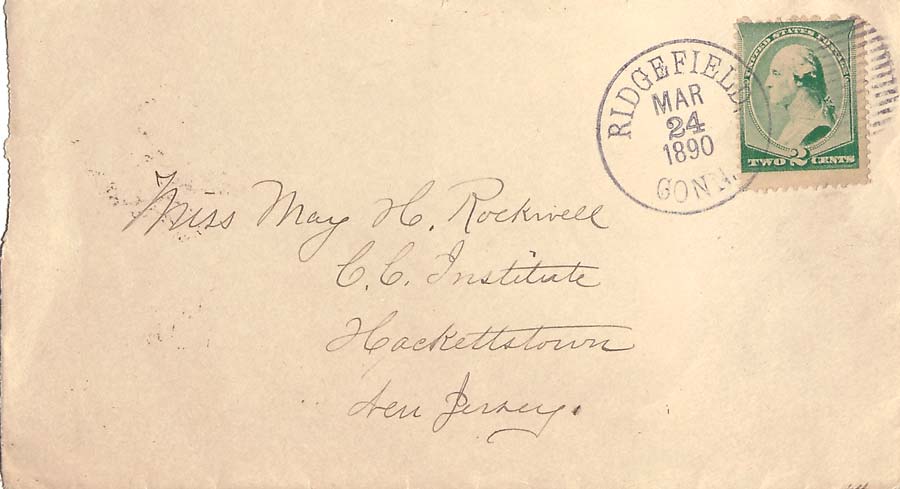 RIDGEFIELD,
MAR
24
1890
CONN.
UNITED STATES POSTAGE
TWO 2 CENTS
Miss May H. Rockwell
C.C. Institute
Hackettstown
New Jersey.